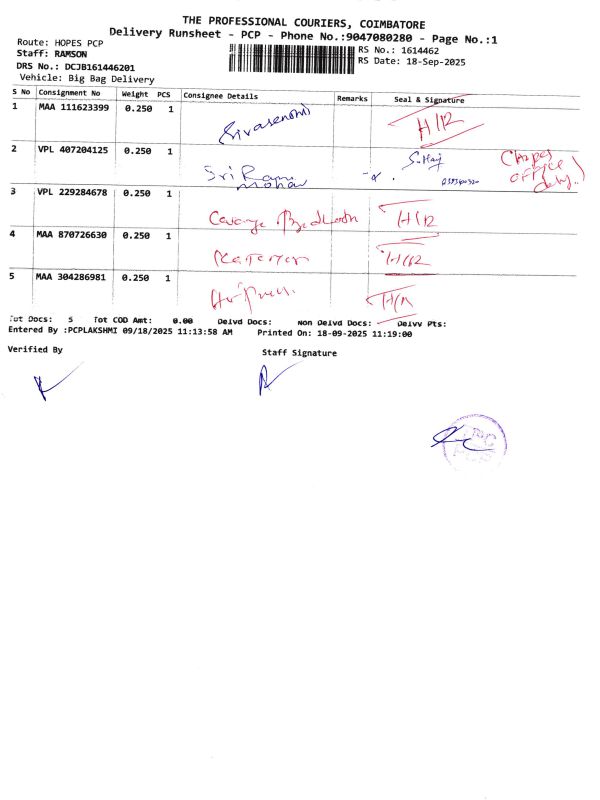 THE PROFESSIONAL COURIERS, COIMBATORE
Delivery Runsheet - PCP - Phone No.:9047080280 - Page No.:1
Route: HOPES PCP
RS No.: 1614462
Staff: RAMSON
RS Date: 18-Sep-2025
DRS No.: DCJB161446201
Vehicle: Big Bag Delivery
S No Consignment No Weight PCS Consignee Details Remarks Seal & Signature
1 MAA 111623399 0.250 1 H/12
2 VPL 407204125 0.250 1 Sri Ram Mohan office
3 VPL 229284678 0.250 1 H/12
4 MAA 870726630 0.250 1 H/12
5 MAA 304286981 0.250 1
Tot Docs: 5 Tot COD Amt: 0.00 Delvd Docs: Non Delvd Docs: Delvv Pts:
Entered By :PCPLAKSHMI 09/18/2025 11:13:58 AM Printed On: 18-09-2025 11:19:00
Verified By
Staff Signature